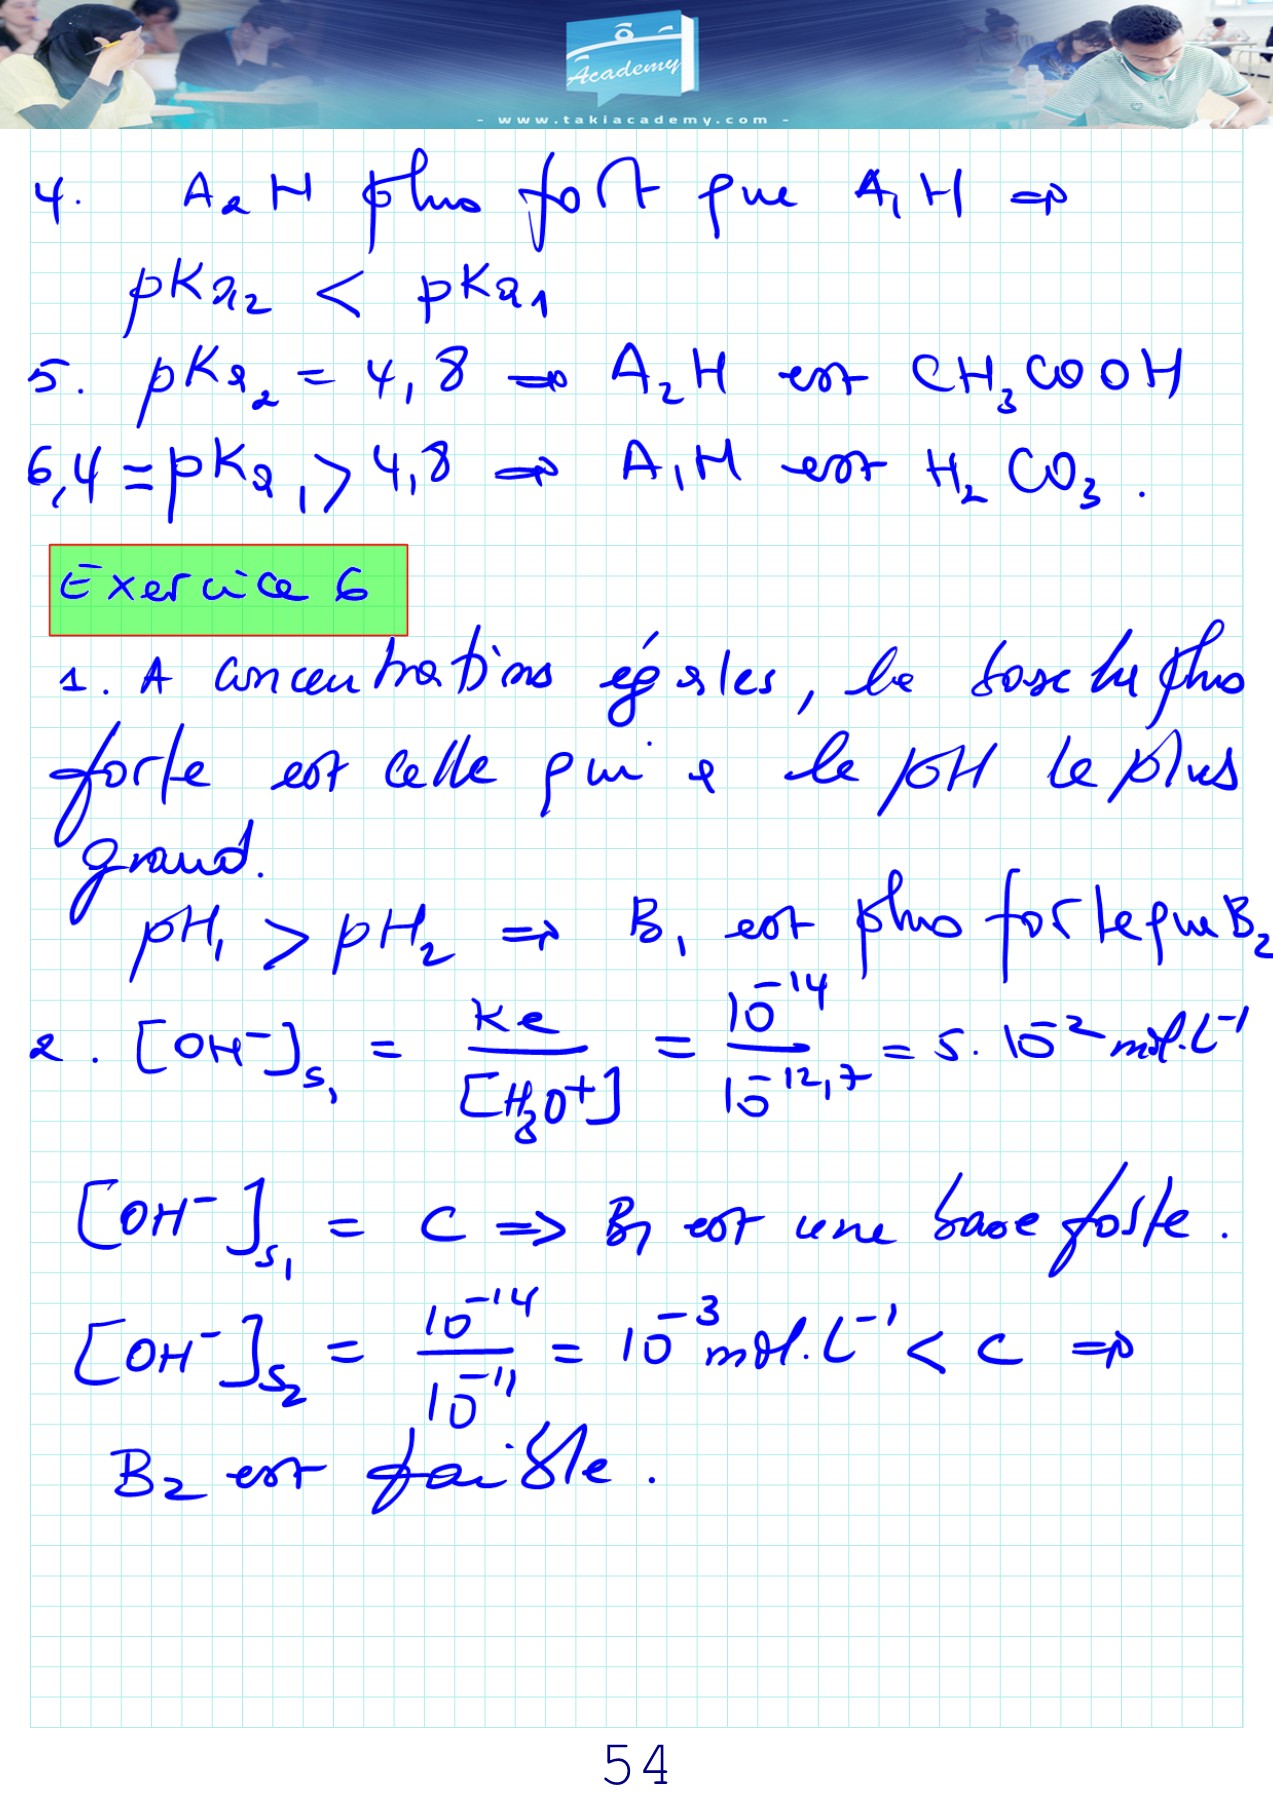 Academy
- www.takiacademy.com -
4. A₂H plus fort que A₁H ⇒
pKa₂ < pKa₁
5. pKa₂ = 4,8 ⇒ A₂H est CH₃COOH
6,4 = pKa₁ > 4,8 ⇒ A₁H est H₂CO₃.
Exercice 6
1. A concentrations égales, la base la plus
forte est celle qui a le pH le plus
grand.
pH₁ > pH₂ ⇒ B₁ est plus forte que B₂
2. [OH⁻]S₁ = Ke / [H₃O⁺] = 10⁻¹⁴ / 10⁻¹²,⁷ = 5.10⁻² mol.L⁻¹
[OH⁻]S₁ = C ⇒ B₁ est une base forte.
[OH⁻]S₂ = 10⁻¹⁴ / 10⁻¹¹ = 10⁻³ mol.L⁻¹ < C ⇒
B₂ est faible.
54